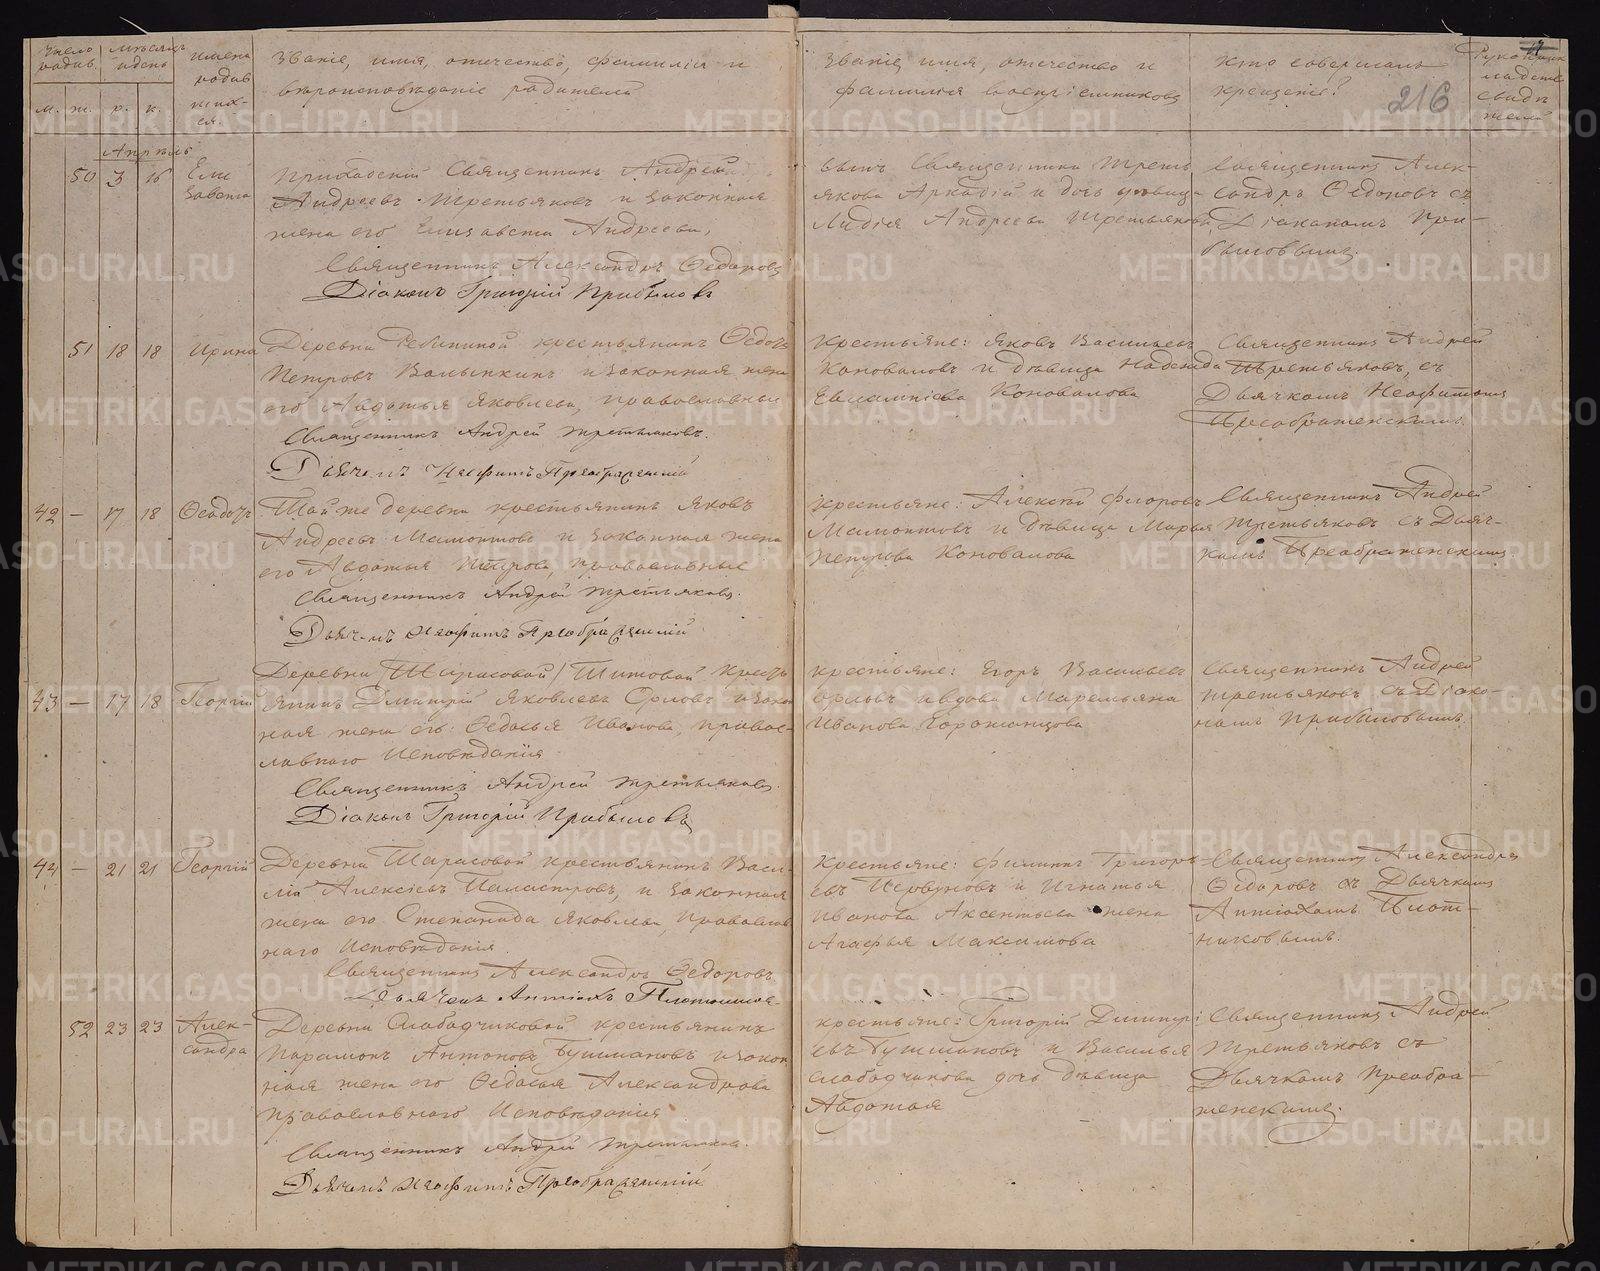 Число родив. мѣсяцъ и день имена родив шихся. Званіе, имя, отчество, фамилія и вѣроисповѣданіе родителей
Званіе, имя, отчество и фамилія воспріемниковъ
Кто совершалъ крещеніе?
216
м. ж. р. к.
Апрѣль
50 3 16 Ели завета
Приходскій Священникъ Андрей
Андреевъ Третьяковъ и законная
жена его Елизавета Андреева,
Священникъ Александръ Ѳедоровъ
Діаконъ Григорій Прибыловъ
сынъ Священника Треть
якова Аркадій и дочь дѣвица
Лидія Андреева Третьякова
Священникъ Алек-
сандръ Ѳедоровъ съ
Діакономъ При-
быловымъ.
51 18 18 Ирина
Деревни крестьянинъ Ѳедоръ
Петровъ и законная жена
его Авдотья Яковлева, православные
Священникъ Андрей Третьяковъ.
Дьячекъ Неофитъ Преображенскій
Крестьяне: Яковъ Васильевъ
Коноваловъ и дѣвица Надежда
Евлампіева Коновалова
Священникъ Андрей
Третьяковъ, съ
Дьячкомъ Неофитомъ
Преображенскимъ.
42 – 17 18 Ѳедоръ
Той же деревни крестьянинъ Яковъ
Андреевъ Мамонтовъ и законная жена
его Авдотья Петрова, православные
Священникъ Андрей Третьяковъ.
Дьячекъ Неофитъ Преображенскій
Крестьяне: Алексѣй Флоровъ
Мамонтовъ и дѣвица Марья
Петрова Коновалова
Священникъ Андрей
Третьяковъ съ Дьяч-
комъ Преображенскимъ.
43 – 17 18 Георгій
Деревни Тарасовой / Титовой кресть
янинъ Дмитрій Яковлевъ Орловъ и закон
ная жена его Ѳедосья Иванова, правос-
лавнаго Исповѣданія
Священникъ Андрей Третьяковъ.
Діаконъ Григорій Прибыловъ
Крестьяне: Егоръ Васильевъ
Орловъ и вдова Маремьяна
Иванова
Священникъ Андрей
Третьяковъ съ Діако-
номъ Прибыловымъ.
44 – 21 21 Георгій
Деревни Тарасовой крестьянинъ Васи-
лій Алексіевъ и законная
жена его Степанида Яковлева, Православ
наго Исповѣданія
Священникъ Александръ Ѳедоровъ
Дьячекъ Антіохъ Плотниковъ
Крестьяне: Филиппъ Григорь
евъ и Игнатья
Иванова Аксентьева жена
Агафья Максимова
Священникъ Александръ
Ѳедоровъ съ Дьячкомъ
Антіохомъ Плот-
никовымъ.
52 23 23 Алек- сандра
Деревни Слободчиковой крестьянинъ
Парамонъ Антоновъ Бушмановъ и закон
ная жена его Ѳедосья Александрова
Православнаго Исповѣданія
Священникъ Андрей Третьяковъ.
Дьячекъ Неофитъ Преображенскій
Крестьяне: Григорій Дмитрі
евъ Бушмановъ и Василья
Слободчикова дочь дѣвица
Авдотья
Священникъ Андрей
Третьяковъ съ
Дьячкомъ Преобра-
женскимъ.
METRIKI.GASO-URAL.RU